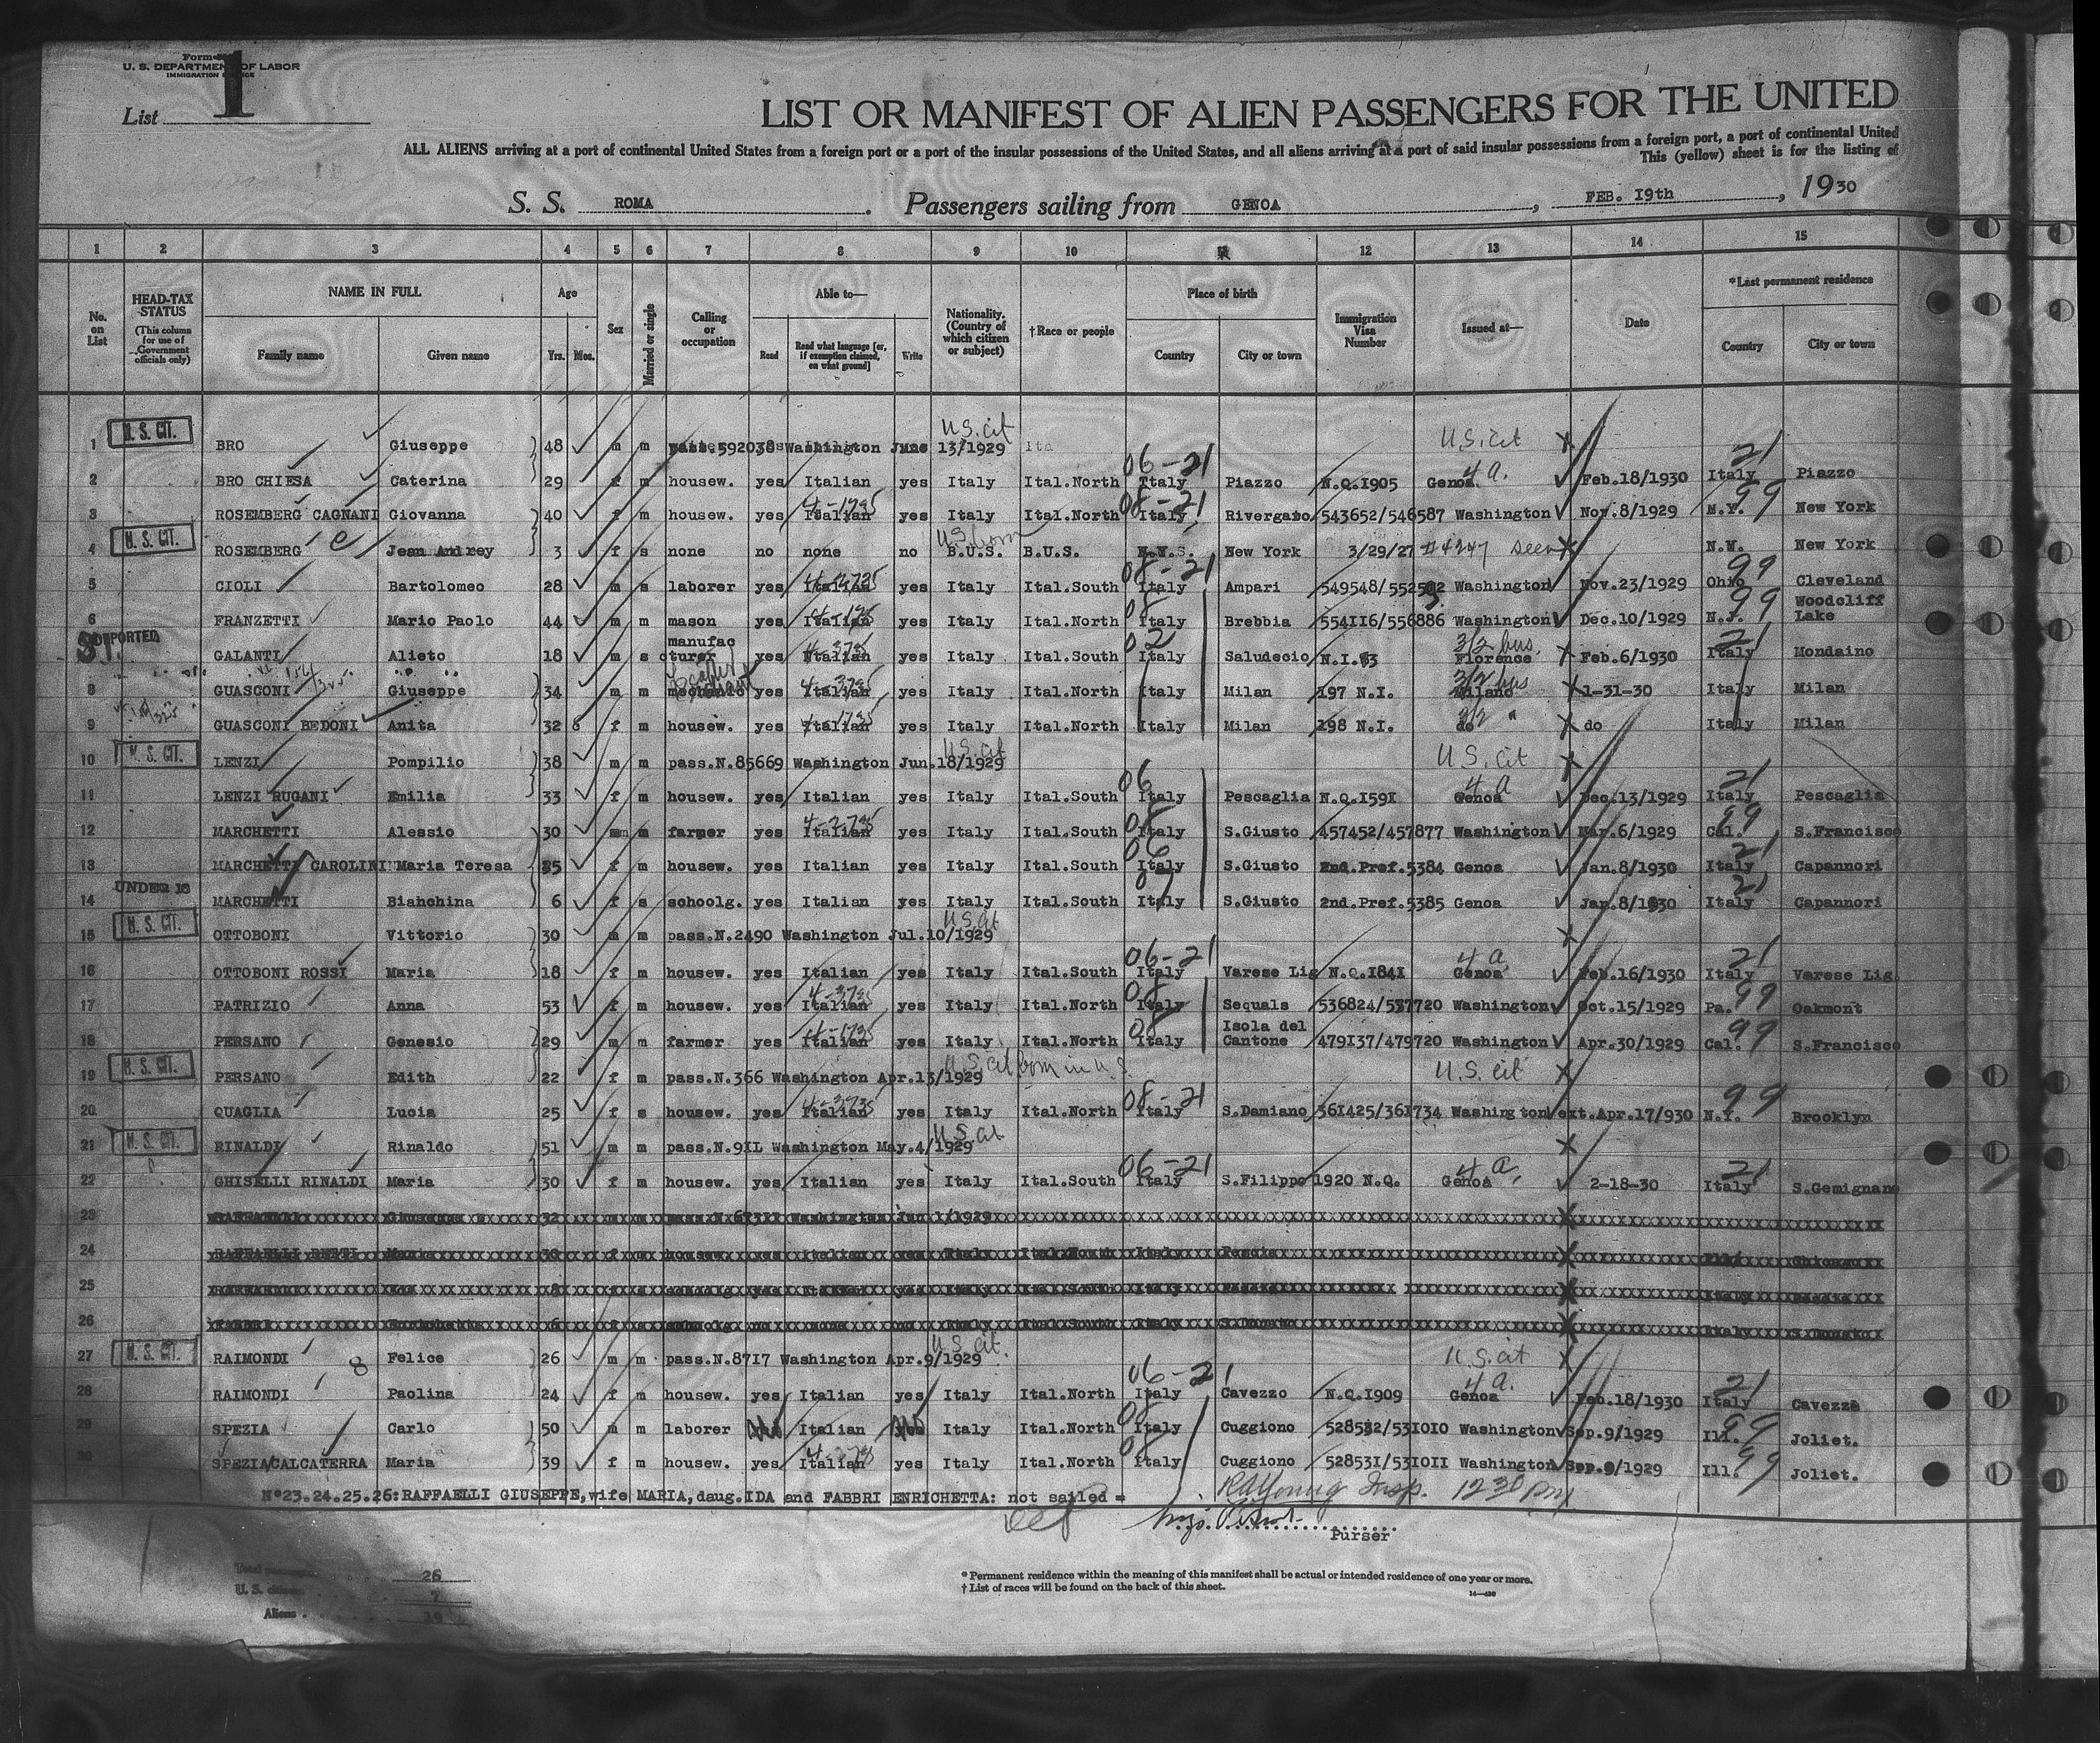 Form
U. S. DEPARTMENT OF LABOR
IMMIGRATION
1
List
LIST OR MANIFEST OF ALIEN PASSENGERS FOR THE UNITED
ALL ALIENS arriving at a port of continental United States from a foreign port or a port of the insular possessions of the United States, and all aliens arriving at a port of said insular possessions from a foreign port, a port of continental United
This (yellow) sheet is for the listing of
S. S. ROMA. Passengers sailing from GENOA, FEB. 19th, 1930
1 2 3 4 5 6 7 8 9 10 11 12 13 14 15
No. on List
HEAD-TAX STATUS (This column for use of Government officials only)
NAME IN FULL
Family name Given name
Age
Yrs. Mos.
Sex
Married or single
Calling or occupation
Able to—
Read
Read what language [or, if exemption claimed, on what ground]
Write
Nationality. (Country of which citizen or subject)
†Race or people
Place of birth
Country City or town
Immigration Visa Number
Issued at—
Date
*Last permanent residence
Country City or town
1 U. S. CIT. BRO Giuseppe 48 m m 592038 Washington June 13/1929 U.S. cit U.S. cit
2 BRO CHIESA Caterina 29 f m housew. yes Italian yes Italy Ital.North 06-21 Italy Piazzo N.Q.1905 Genoa 4 a. Feb.18/1930 21 Italy Piazzo
3 ROSEMBERG CAGNANI Giovanna 40 f m housew. yes Italian yes Italy Ital.North 08-21 Italy Rivergaro 543652/546587 Washington Nov.8/1929 N.Y. 99 New York
4 U. S. CIT. ROSEMBERG Jean Andrey 3 f s none no none no U.S. born B.U.S. B.U.S. New York 3/29/27 #4247 seen N.Y. New York
5 CIOLI Bartolomeo 28 m s laborer yes Italian yes Italy Ital.South 08-21 Italy Ampari 549548/552502 Washington Nov.23/1929 Ohio 99 Cleveland
6 FRANZETTI Mario Paolo 44 m m mason yes Italian yes Italy Ital.North 08 Italy Brebbia 554116/556886 Washington Dec.10/1929 N.J. 99 Woodcliff Lake
GALANTI Alieto 18 m s manufacturer yes Italian yes Italy Ital.South 02 Italy Saludecio N.I.53 3/2 bus. Florence Feb.6/1930 21 Italy Mondaino
8 GUASCONI Giuseppe 34 m m yes Italian yes Italy Ital.North Italy Milan 197 N.I. 3/2 bus Milano 1-31-30 Italy Milan
9 GUASCONI BEDONI Anita 32 6 f m housew. yes Italian yes Italy Ital.North Italy Milan 198 N.I. 3/2 " do do Italy Milan
10 U. S. CIT. LENZI Pompilio 38 m m pass.N.85669 Washington Jun.18/1929 U.S. cit U.S. cit
11 LENZI RUGANI Emilia 33 f m housew. yes Italian yes Italy Ital.South 06 Italy Pescaglia N.Q.1591 4 a Genoa Dec.13/1929 21 Italy Pescaglia
12 MARCHETTI Alessio 30 m m farmer yes Italian yes Italy Ital.South 08 Italy S.Giusto 457452/457877 Washington Mar.6/1929 Cal. 99 S.Francisco
13 MARCHETTI CAROLINI Maria Teresa 25 f m housew. yes Italian yes Italy Ital.South 06 Italy S.Giusto 2nd.Pref.5384 Genoa Jan.8/1930 21 Italy Capannori
14 UNDER 16 MARCHETTI Bianchina 6 f s schoolg. yes Italian yes Italy Ital.South Italy S.Giusto 2nd.Pref.5385 Genoa Jan.8/1930 21 Italy Capannori
15 U. S. CIT. OTTOBONI Vittorio 30 m m pass.N.2490 Washington Jul.10/1929 U.S. cit
16 OTTOBONI ROSSI Maria 18 f m housew. yes Italian yes Italy Ital.South 06-21 Italy Varese Lig N.Q.1841 4 a Genoa Feb.16/1930 21 Italy Varese Lig.
17 PATRIZIO Anna 53 f m housew. yes Italian yes Italy Ital.North 08 Italy Sequals 536824/537720 Washington Oct.15/1929 Pa. 99 Oakmont
18 PERSANO Genesio 29 m m farmer yes Italian yes Italy Ital.North 08 Italy Isola del Cantone 479137/479720 Washington Apr.30/1929 Cal. 99 S.Francisco
19 U. S. CIT. PERSANO Edith 22 f m pass.N.366 Washington Apr.13/1929 U.S. cit born in U.S. U.S. cit
20 QUAGLIA Lucia 25 f s housew. yes Italian yes Italy Ital.North 08-21 Italy S.Damiano 361425/361734 Washington ext.Apr.17/930 N.Y. 99 Brooklyn
21 U. S. CIT. RINALDI Rinaldo 51 m m pass.N.911 Washington May.4/1929 U.S. cit
22 GHISELLI RINALDI Maria 30 f m housew. yes Italian yes Italy Ital.South 06-21 Italy S.Filippo 1920 N.Q. 4 a. Genoa 2-18-30 21 Italy S.Gemignano
23 RAFFAELLI Giuseppe 32 m m Washington Jan 1/1929
24 RAFFAELLI Maria 30 f m housew. yes Italian yes Italy Ital.South Italy Pescia Chicago
25 RAFFAELLI Ida 8 f Italian yes Italy Ital South Italy Pescia Italy Pescia
26 FABBRI Enrichetta 6 f s schoolg no none no Italy Ital South Italy S.Donato Italy S.Donato
27 U. S. CIT. RAIMONDI Felice 26 m m pass.N.8717 Washington Apr.9/1929 U.S. cit. U.S. cit
28 RAIMONDI Paolina 24 f m housew. yes Italian yes Italy Ital.North 06-21 Italy Cavezzo N.Q.1909 4 a. Genoa Feb.18/1930 21 Italy Cavezzo
29 SPEZIA Carlo 50 m m laborer Italian Italy Ital.North 08 Italy Cuggiono 528532/531010 Washington Sep.9/1929 Ill. 99 Joliet.
30 SPEZIA/CALCATERRA Maria 39 f m housew. yes Italian yes Italy Ital.North 08 Italy Cuggiono 528531/531011 Washington Sep.9/1929 Ill. 99 Joliet.
N°23.24.25.26: RAFFAELLI GIUSEPPE, wife MARIA, daug.IDA and FABBRI ENRICHETTA: not sailed =
RAYoung Insp. 12 30 PM
Purser
Total 26
U. S. citizens 7
Aliens 19
* Permanent residence within the meaning of this manifest shall be actual or intended residence of one year or more.
† List of races will be found on the back of this sheet.